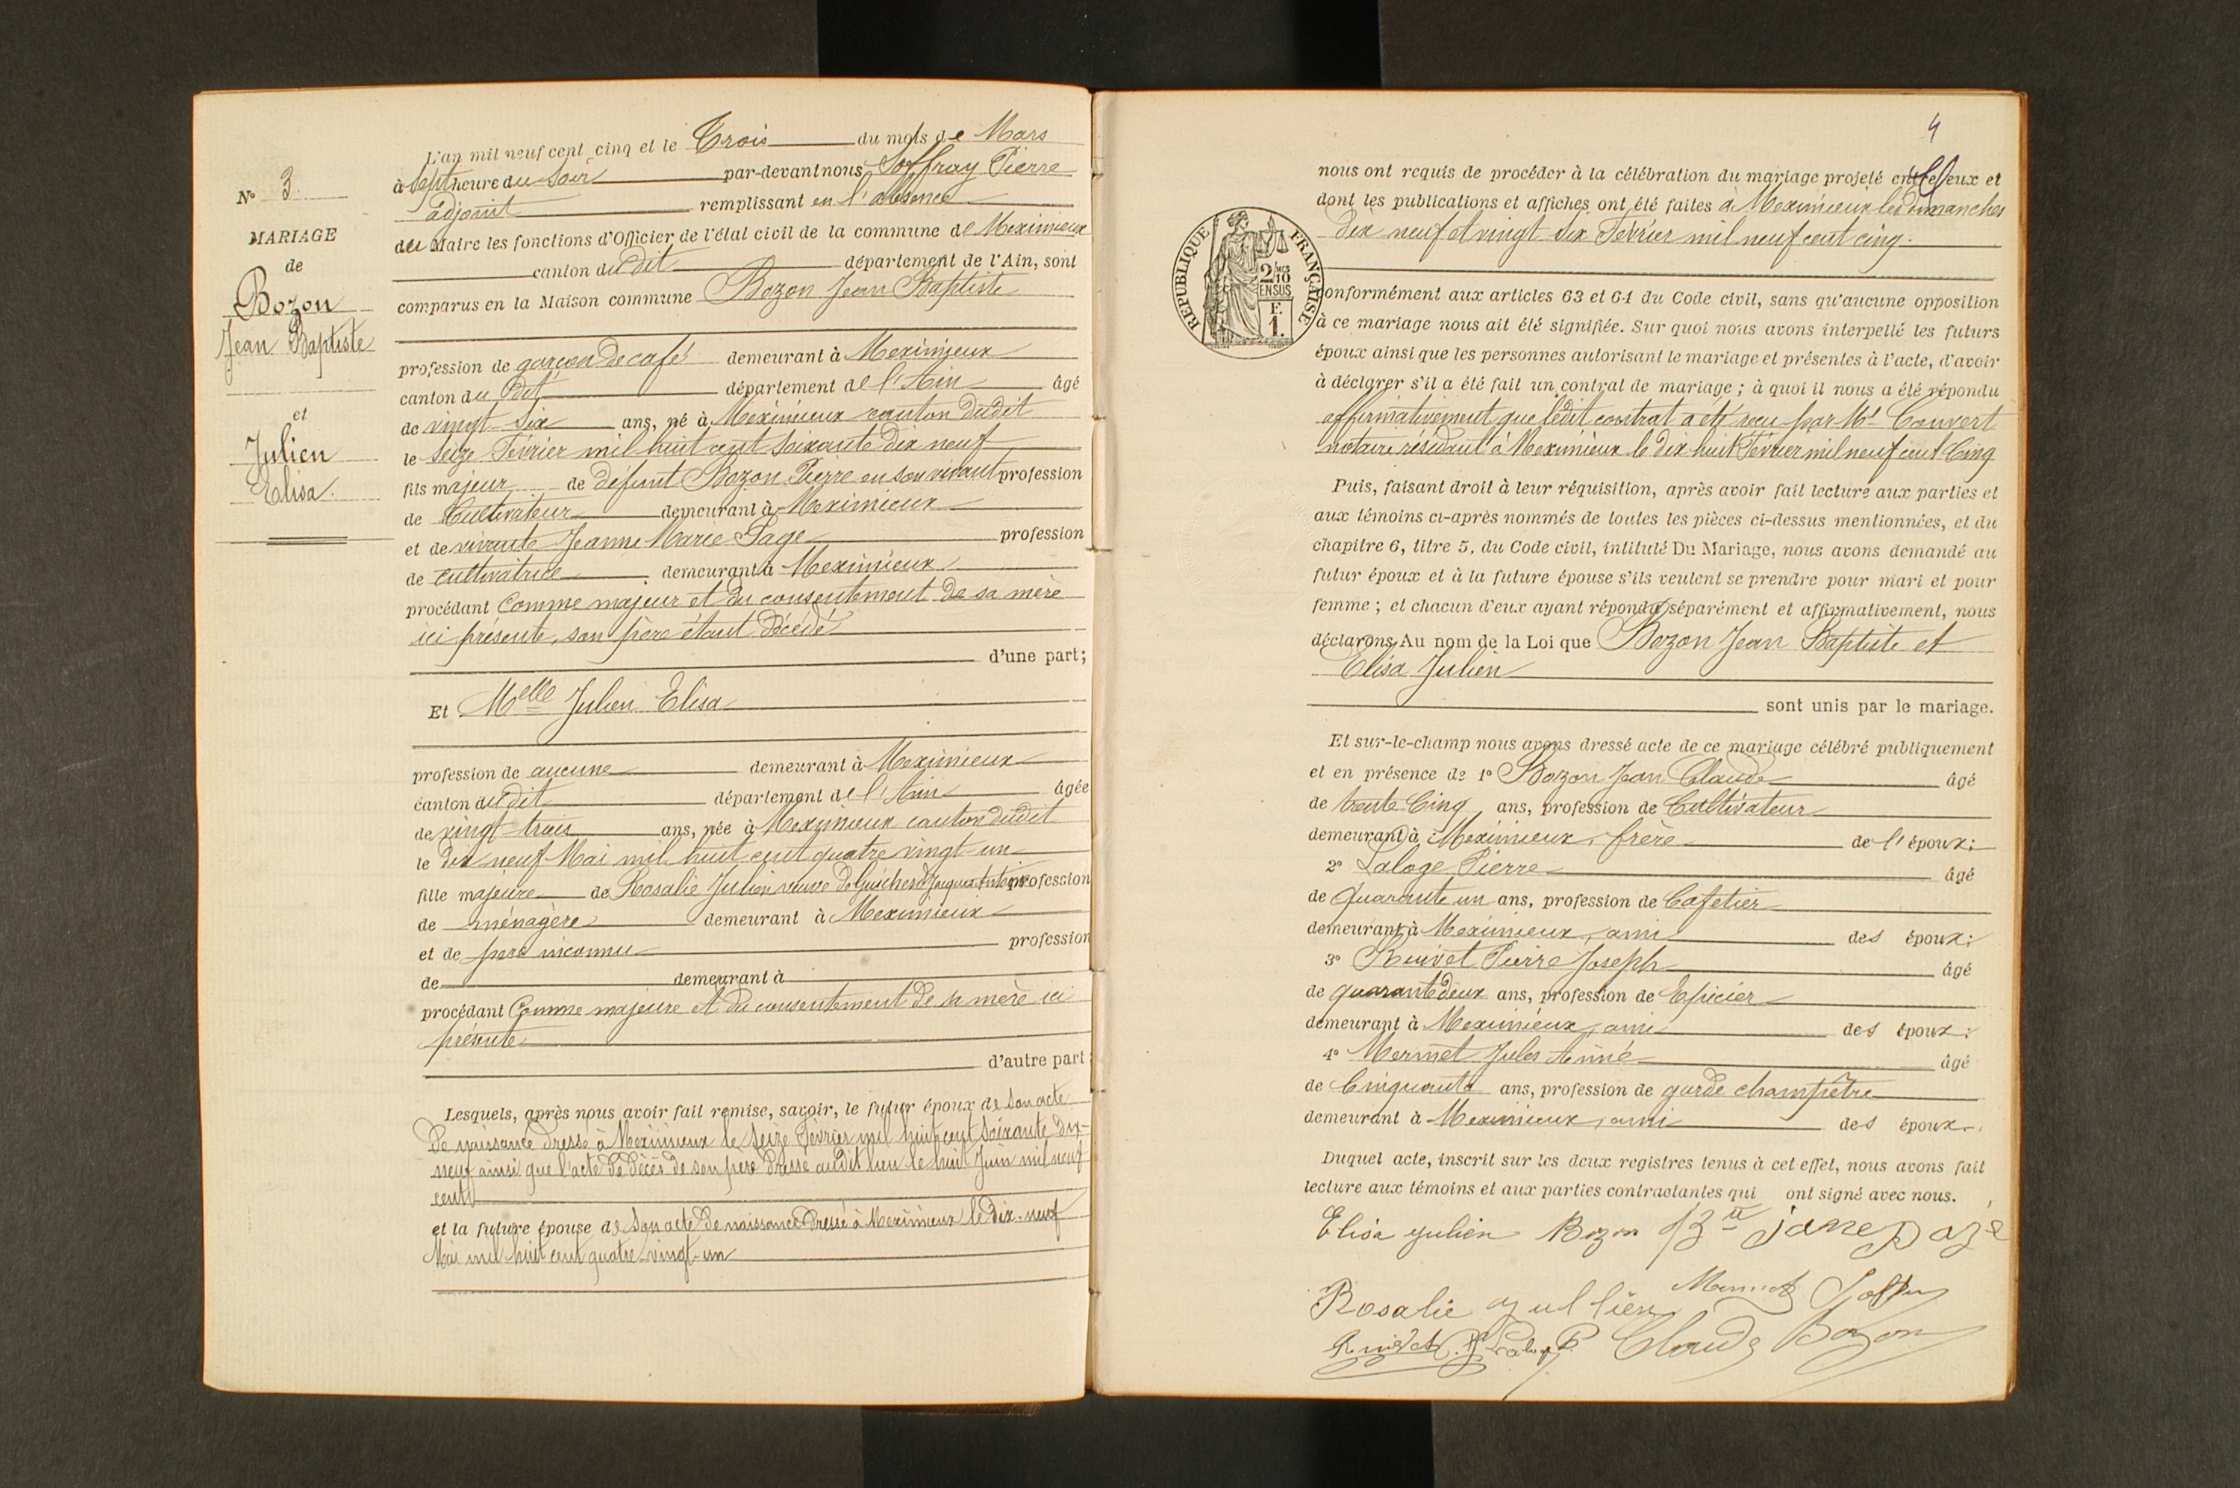 N° 3
MARIAGE
de
Bozon
Jean Baptiste
et
Julien
Elisa.
L'an mil neuf cent cinq et le Trois du mois de Mars
à Sept heure du Soir par-devant nous Joffray Pierre
adjoint remplissant en l'absence
du Maire les fonctions d'Officier de l'état civil de la commune de Meximieux
canton du dit département de l'Ain, sont
comparus en la Maison commune Bozon Jean Baptiste
profession de garçon de café demeurant à Meximieux
canton du dit département de l'Ain âgé
de vingt six ans, né à Meximieux canton dudit
le Seize Février mil huit cent soixante dix neuf
fils majeur de défunt Bozon Pierre en son vivant profession
de Cultivateur demeurant à Meximieux
et de vivante Jeanne Marie Page profession
de cultivatrice demeurant à Meximieux
procédant Comme majeur et du consentement de sa mère
ici présente, son père étant décédé
d'une part;
Et Melle Julien Elisa
profession de aucune demeurant à Meximieux
canton du dit département de l'Ain âgée
de vingt-trois ans, née à Meximieux canton dudit
le dix neuf Mai mil huit cent quatre vingt un
fille majeure de Rosalie Julien veuve de Guicherd Jacques Antoine profession
de ménagère demeurant à Meximieux
et de père inconnu profession
de demeurant à
procédant Comme majeure et du consentement de sa mère ici
présente
d'autre part;
Lesquels, après nous avoir fait remise, savoir, le futur époux de son acte
de naissance dressé à Meximieux le seize Février mil huit cent soixante dix-
neuf ainsi que l'acte de décès de son père dressé audit lieu le huit Juin mil neuf
cent
et la future épouse de son acte de naissance dressé à Meximieux le dix-neuf
Mai mil huit cent quatre-vingt-un
4
nous ont requis de procéder à la célébration du mariage projeté entre eux et
dont les publications et affiches ont été faites à Meximieux les dimanches
dix neuf et vingt six Février mil neuf cent cinq.
RÉPUBLIQUE FRANÇAISE
2/10
EN SUS
F.
1.
Conformément aux articles 63 et 64 du Code civil, sans qu'aucune opposition
à ce mariage nous ait été signifiée. Sur quoi nous avons interpellé les futurs
époux ainsi que les personnes autorisant le mariage et présentes à l'acte, d'avoir
à déclarer s'il a été fait un contrat de mariage; à quoi il nous a été répondu
affirmativement que ledit contrat a été reçu par Me Convert
notaire résidant à Meximieux le dix huit Février mil neuf cent Cinq
Puis, faisant droit à leur réquisition, après avoir fait lecture aux parties et
aux témoins ci-après nommés de toutes les pièces ci-dessus mentionnées, et du
chapitre 6, titre 5, du Code civil, intitulé Du Mariage, nous avons demandé au
futur époux et à la future épouse s'ils veulent se prendre pour mari et pour
femme; et chacun d'eux ayant répondu séparément et affirmativement, nous
déclarons Au nom de la Loi que Bozon Jean Baptiste et
Elisa Julien
sont unis par le mariage.
Et sur-le-champ nous avons dressé acte de ce mariage célébré publiquement
et en présence de 1° Bozon Jean Claude âgé
de trente Cinq ans, profession de Cultivateur
demeurant à Meximieux, frère de l'époux;
2° Laloge Pierre âgé
de quarante un ans, profession de Cafetier
demeurant à Meximieux, ami des époux;
3° Ruivet Pierre Joseph âgé
de quarante deux ans, profession de Epicier
demeurant à Meximieux, ami des époux;
4° Mermet Jules Aimé âgé
de Cinquante ans, profession de garde champêtre
demeurant à Meximieux, ami des époux.
Duquel acte, inscrit sur les deux registres tenus à cet effet, nous avons fait
lecture aux témoins et aux parties contractantes qui ont signé avec nous.
Elisa Julien Bozon J B te jane paje
Rosalie jullien Mermet Joffray
Ruivet Laloge P Claude Bozon